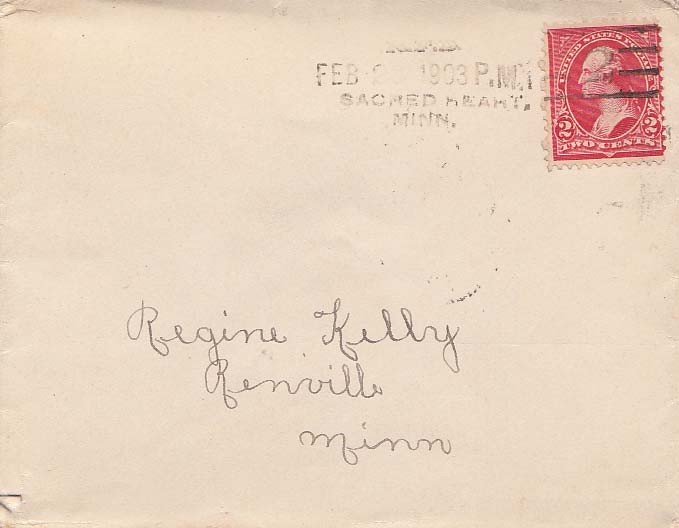 FEB 1903 P.M.
SACRED HEART,
MINN.
UNITED STATES
2 2
TWO CENTS
Regine Kelly
Renville
Minn